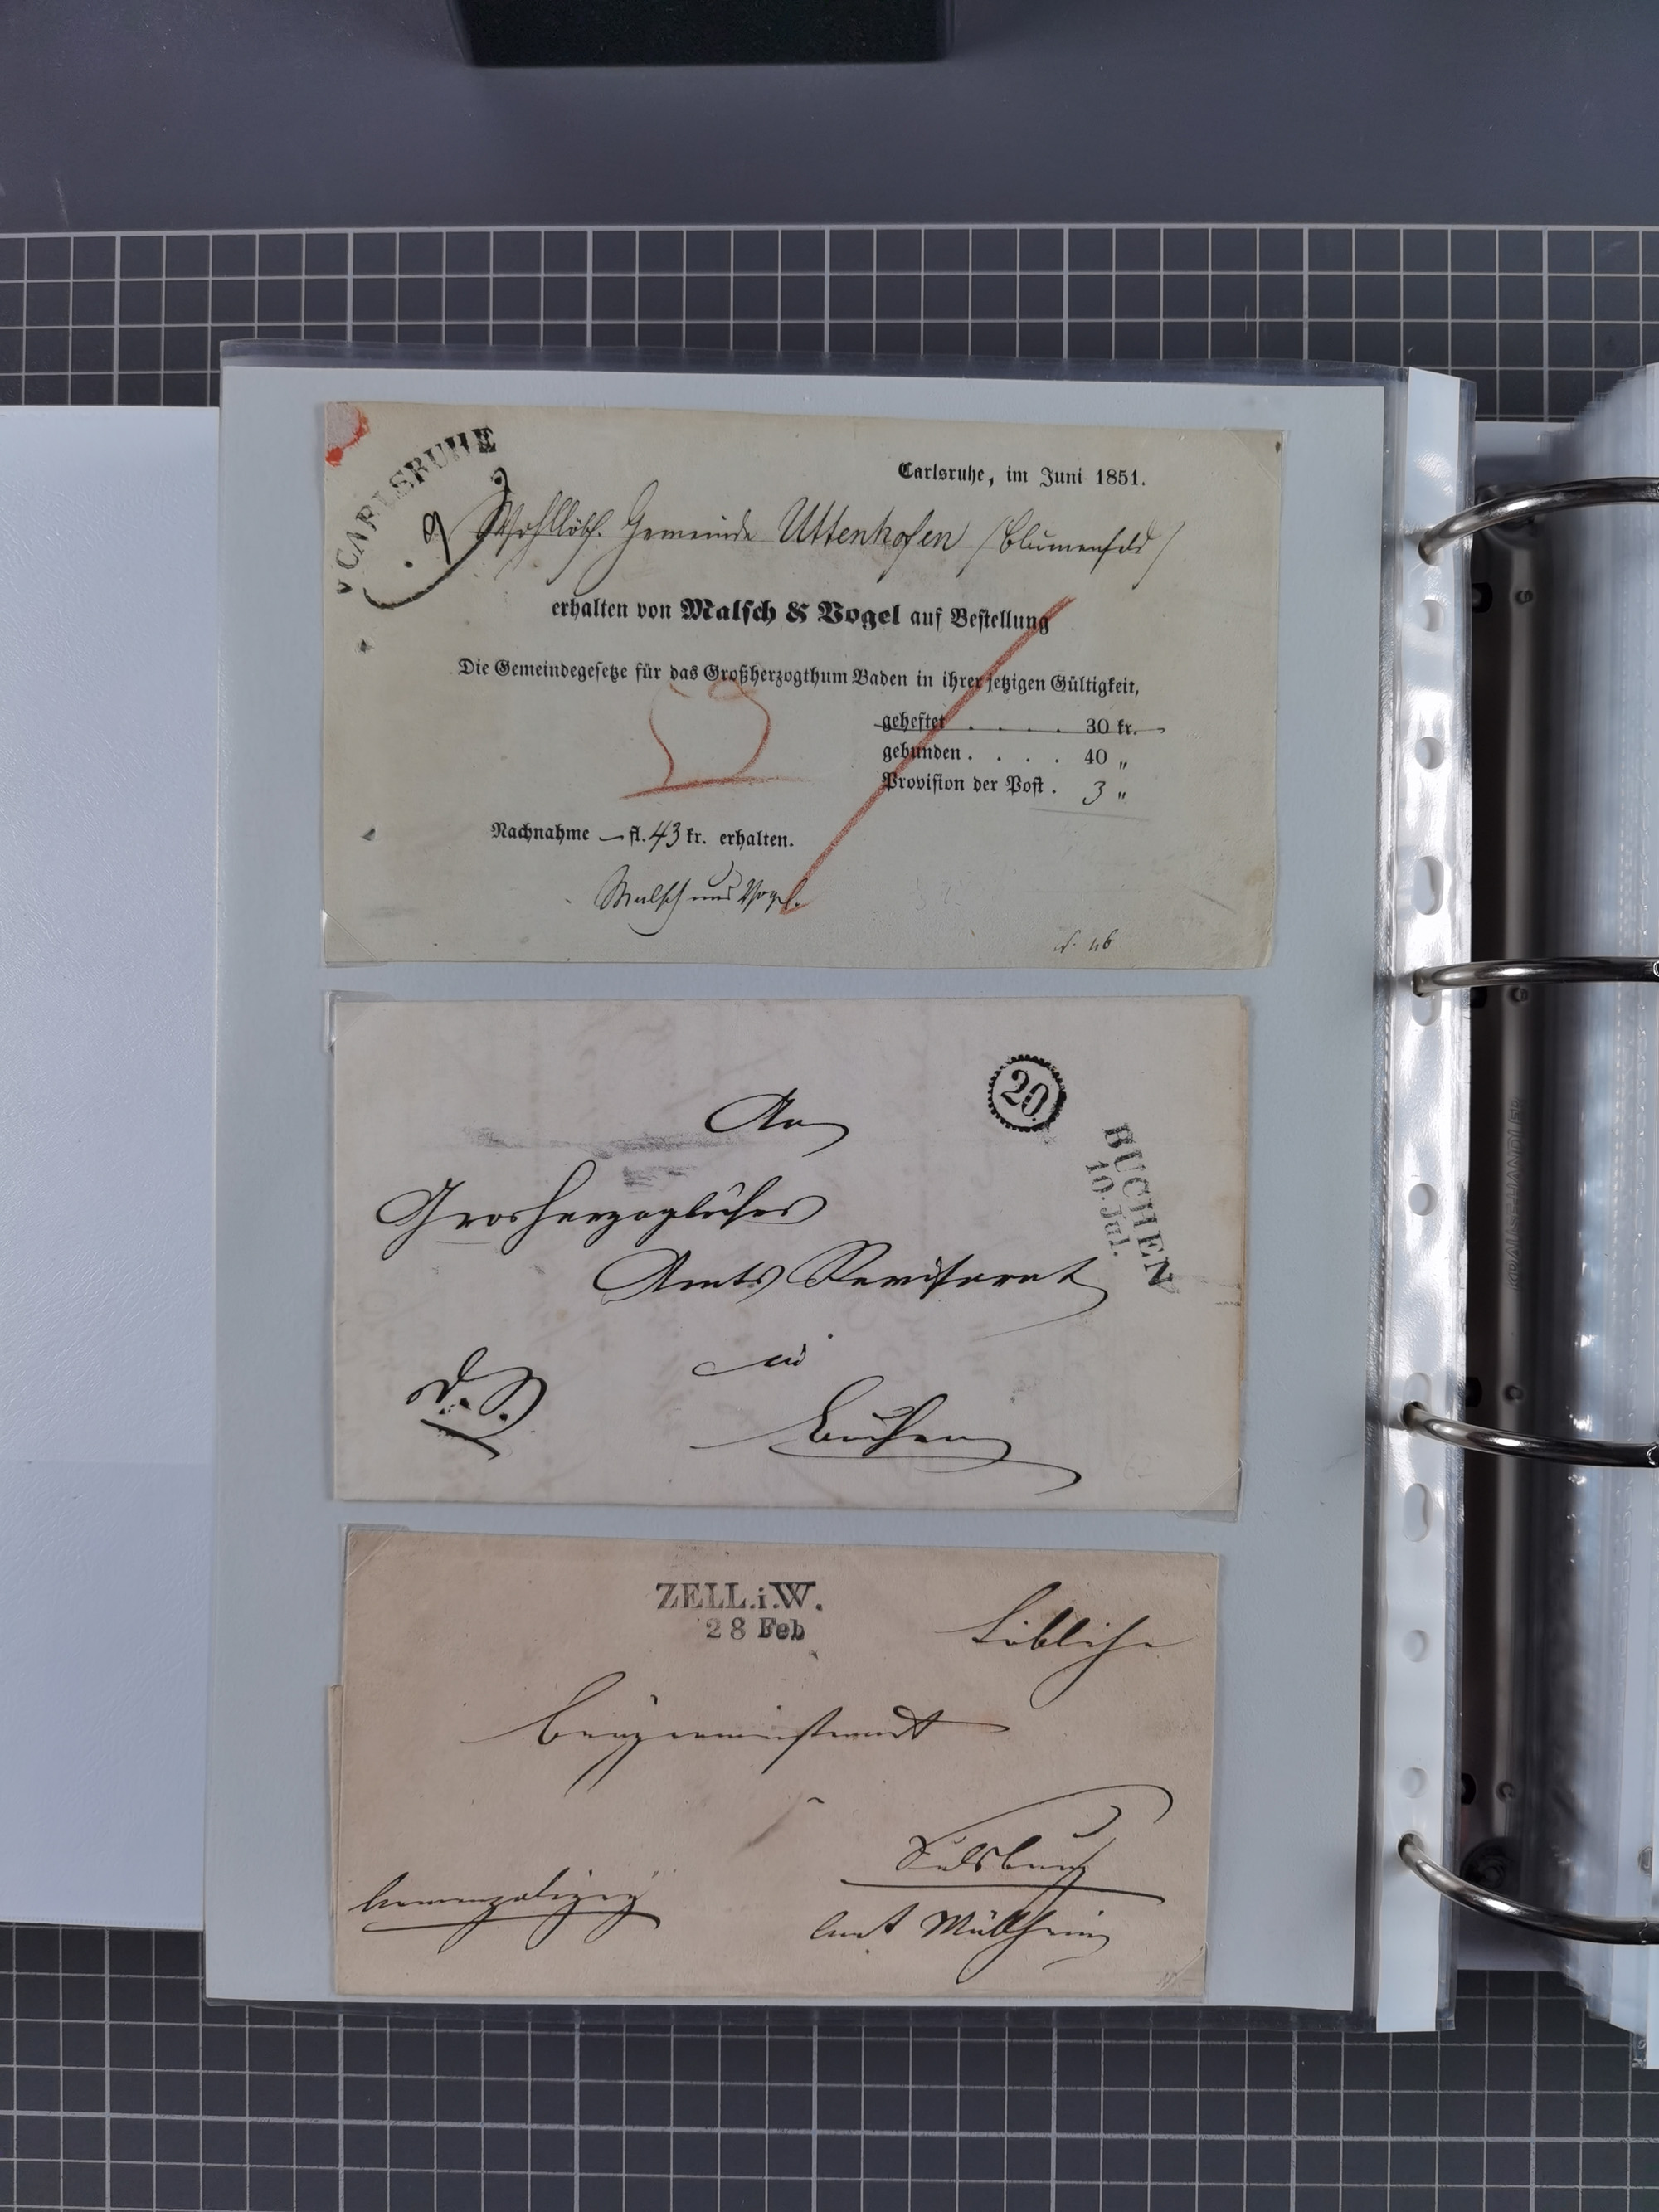 CARLSRUHE
9
Carlsruhe, im Juni 1851.
Wohllöbl. Gemeinde Uttenhofen /Blumenfeld/
erhalten von Malsch & Vogel auf Bestellung
Die Gemeindegesetze für das Großherzogthum Baden in ihrer jetzigen Gültigkeit,
geheftet . . . . . 30 kr.
gebunden . . . . 40 „
Provision der Post . 3 „
Nachnahme — fl. 43 kr. erhalten.
Malsch und Vogel.
20
BUCHEN
10. Jul.
An
Grosherzogliches
Amts Revisorat
in
D. S.
Buchen
ZELL.i.W.
28 Feb
Löbliche
Bürgermeisteramt
Sulzburg
Amt Müllheim